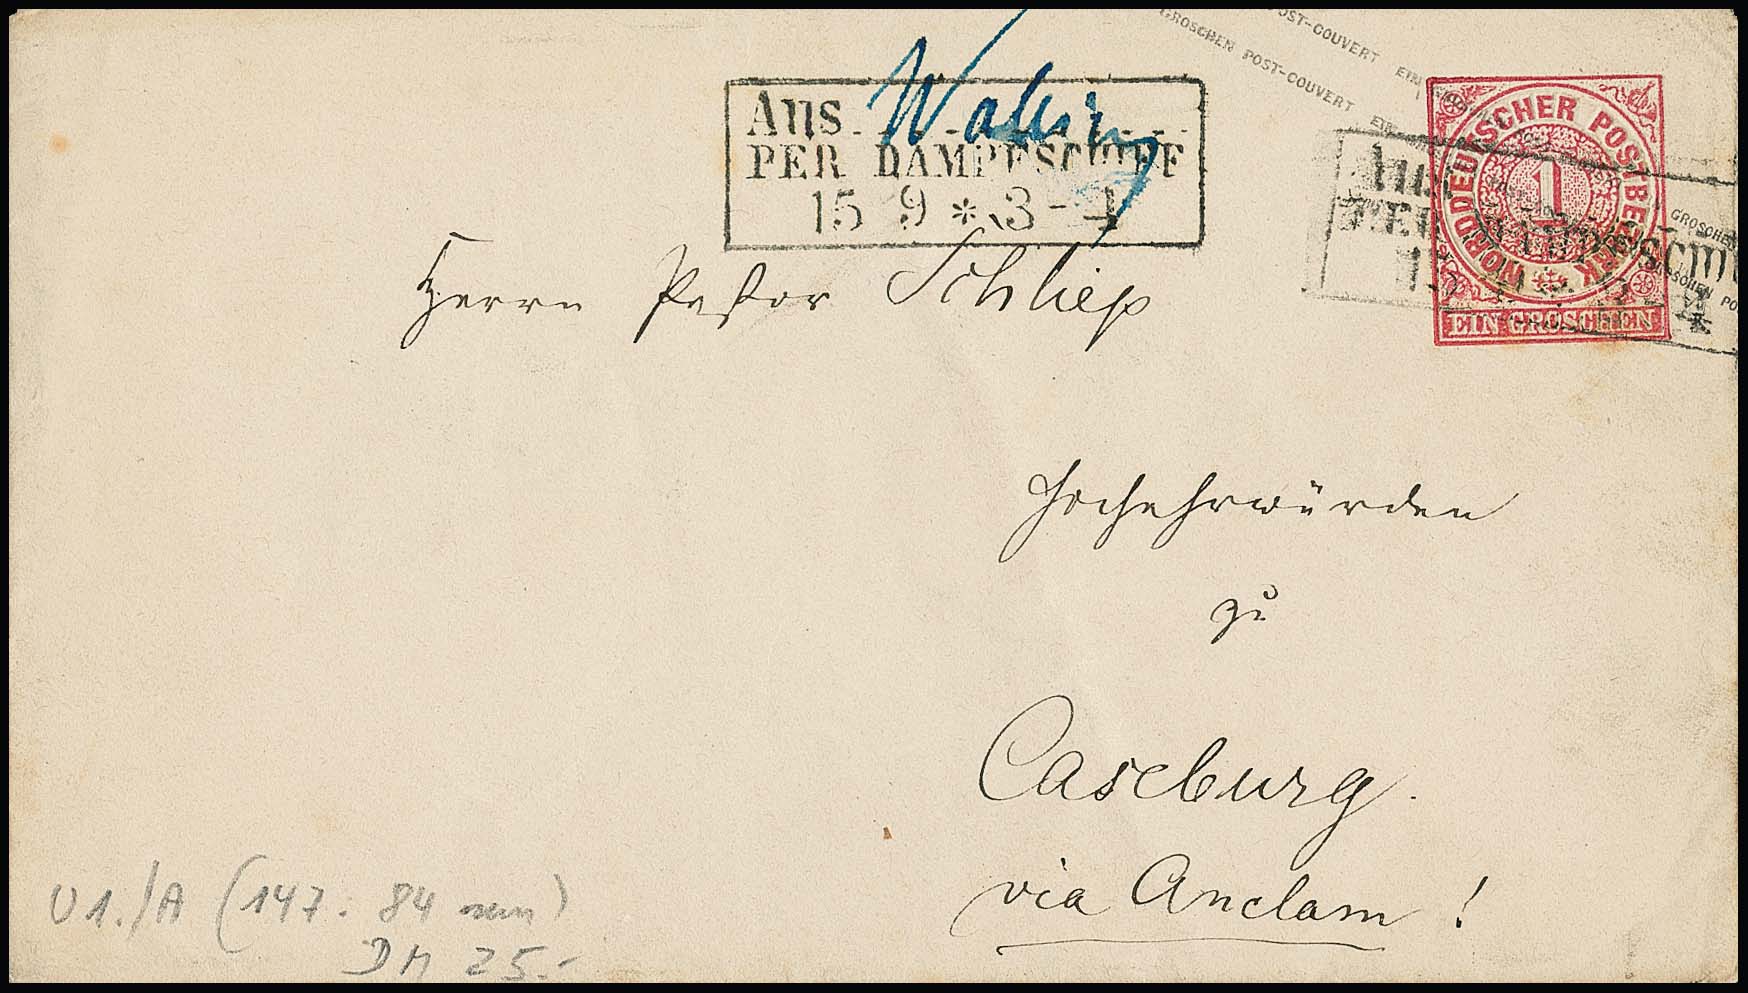 POST-COUVERT EIN
GROSCHEN POST-COUVERT EIN
Aus Wollin
PER DAMPFSCHIFF
15 9 * 3-4
NORDDEUTSCHER POSTBEZIRK
1
EIN GROSCHEN
Aus
PER DAMPFSCHIFF
GROSCHEN
GROSCHEN PO
Herrn Pastor Schliep
Hochehrwürden
zu
Caseburg.
via Anclam!
U 1./A (147: 84 mm)
DM 25.-